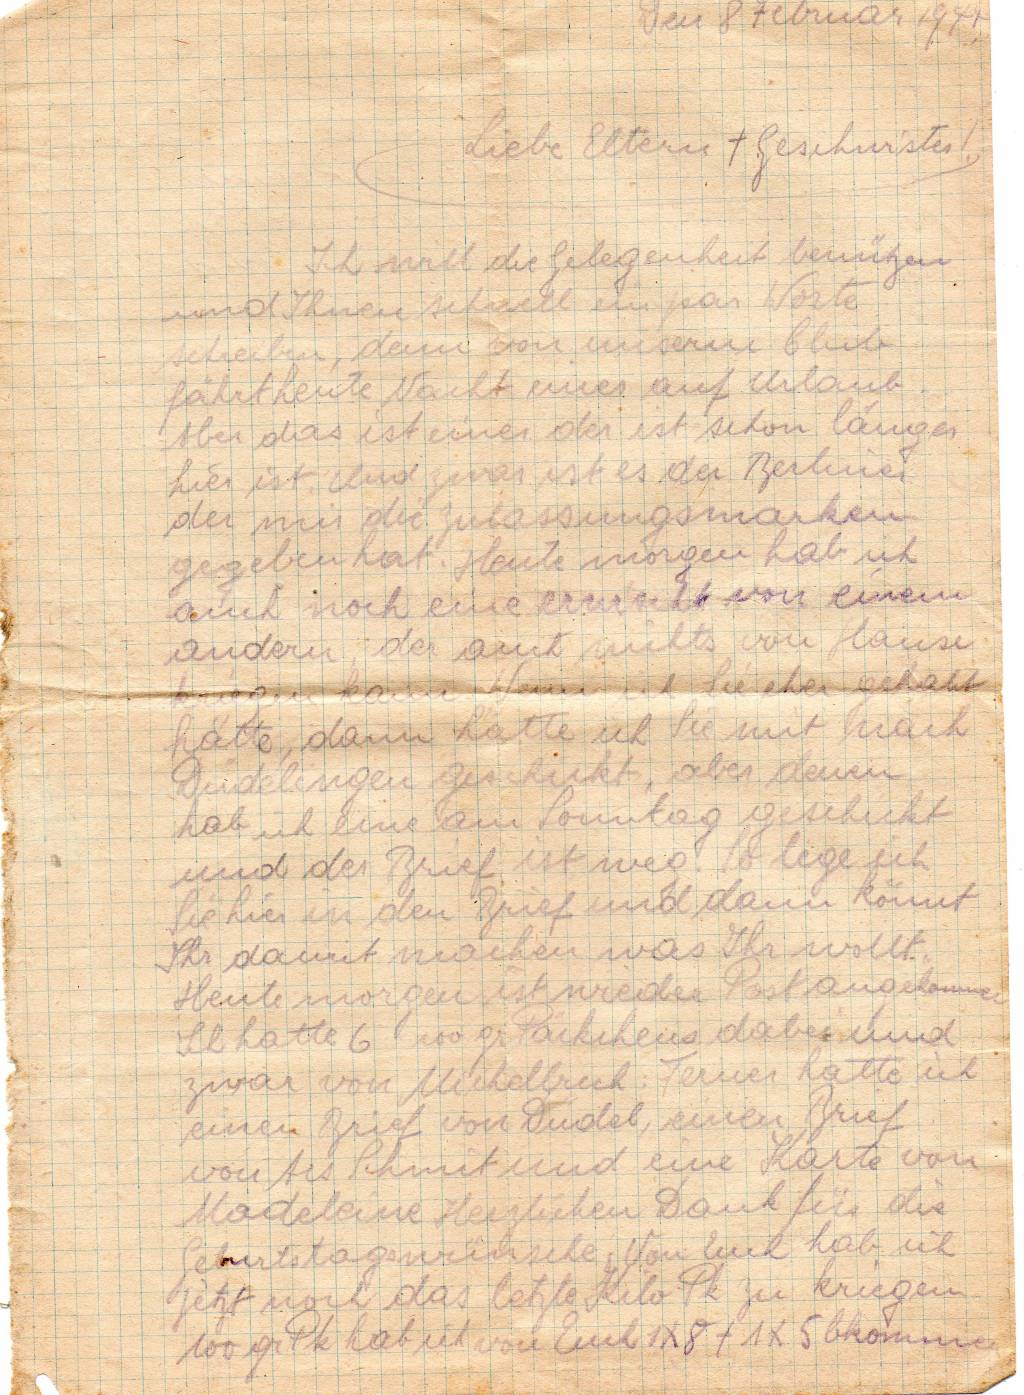 Den 8 Februar 1944
Liebe Eltern + Geschwister!
Ich will die Gelegenheit benützen
und Ihnen schnell ein par Worte
schreiben, denn von unserm Club
fährt heute Nacht einer auf Urlaub.
Aber das ist einer der ist schon länger
hier ist. Und zwar ist es der Berliner
der mir die Zulassungsmarken
gegeben hat. Heute morgen hab ich
auch noch eine erwischt von einem
andern, der auch nichts von Hause
kriegen kann. Wenn ich Sie eher gehabt
hätte, dann hätte ich Sie mit nach
Düdelingen geschickt, aber denen
hab ich eine am Sonntag geschickt
und der Brief ist weg. So lege ich
Sie hier in den Brief und dann könnt
Ihr damit machen was Ihr wollt.
Heute morgen ist wieder Post angekommen
Ich hatte 6 100 gr Päckchens dabei und
zwar von Michelbuch. Ferner hatte ich
einen Brief von Düdel, einen Brief
von Schmit und eine Karte von
Madeleine Herzlichen Dank für die
Geburtstagswünsche. Von Euch hab ich
jetzt noch das letzte Kilo Pk zu kriegen
100 gr Pk hab ich von Euch 1X8 + 1X5 bkommen